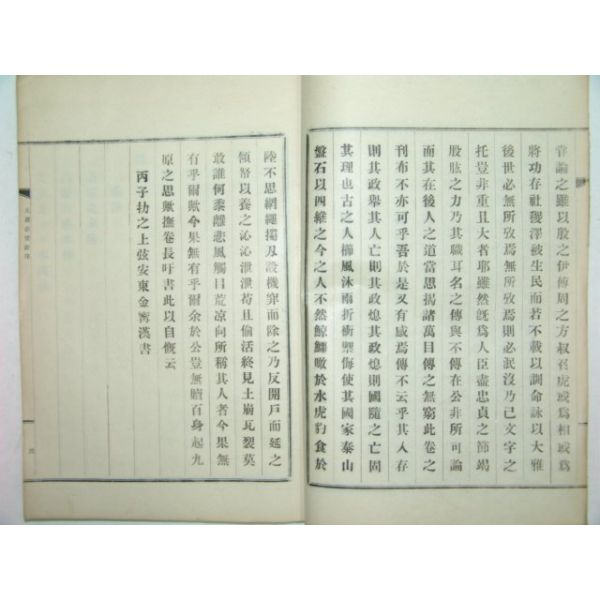 嘗論之雖以殷之伊傅周之方叔召虎或爲相或爲
將功存社稷澤被生民而若不載以訓命詠以大雅
後世必無所攷焉無所攷焉則必泯沒乃已文字之
托豈非重且大者耶雖然旣爲人臣盡忠貞之節竭
股肱之力乃其職耳名之傳與不傳在公非所可論
而其在後人之道當思揭諸萬目傳之無窮此卷之
刊布不亦可乎吾於是又有感焉傳不云乎其人存
則其政舉其人亡則其政熄其政熄則國隨之亡固
其理也古之人櫛風沐雨折衝禦侮使其國家泰山
盤石以四維之今之人不然鯨鱷噉於水虎豹食於
陸不思網繩獨及設機穽而除之乃反開戶而延之
傾帑以養之沁沁泄泄苟且偷活終見土崩瓦裂莫
敢誰何黍離悲風觸目荒凉向所稱其人者今果無
有乎爾歟今果無有乎爾余於公豈無贖百身起九
原之思歟撫卷長吁書此以自慨云
丙子㘽之上弦安東金甯漢書